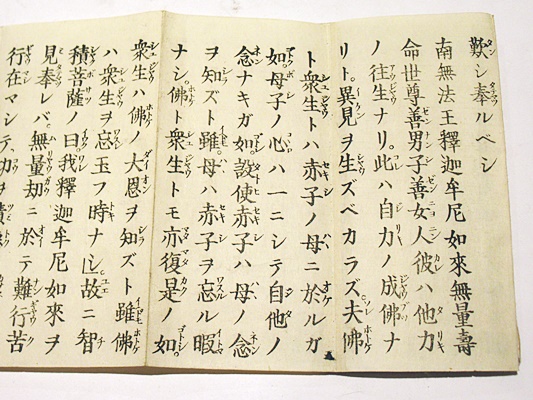 歎シ奉ルベシ
南無法王釋迦牟尼如來無量壽
命世尊善男子善女人彼ハ他力
ノ往生ナリ。此ハ自力ノ成佛ナ
リト。異見ヲ生ズベカラズ。夫佛
ト衆生トハ赤子ノ母ニ於ルガ
如。母子ノ心ハ一ニシテ自他ノ
念ナキガ如。設使赤子ハ母ノ念
ヲ知ズト雖。母ハ赤子ヲ忘ル暇
ナシ。佛ト衆生トモ亦復是ノ如。
衆生ハ佛ノ大恩ヲ知ズト雖。佛
ハ衆生ヲ忘玉フ時ナシ。故ニ智
積菩薩ノ曰我釋迦牟尼如來ヲ
見奉レバ。無量劫ニ於テ難行苦
行在マシテ。功ヲ積